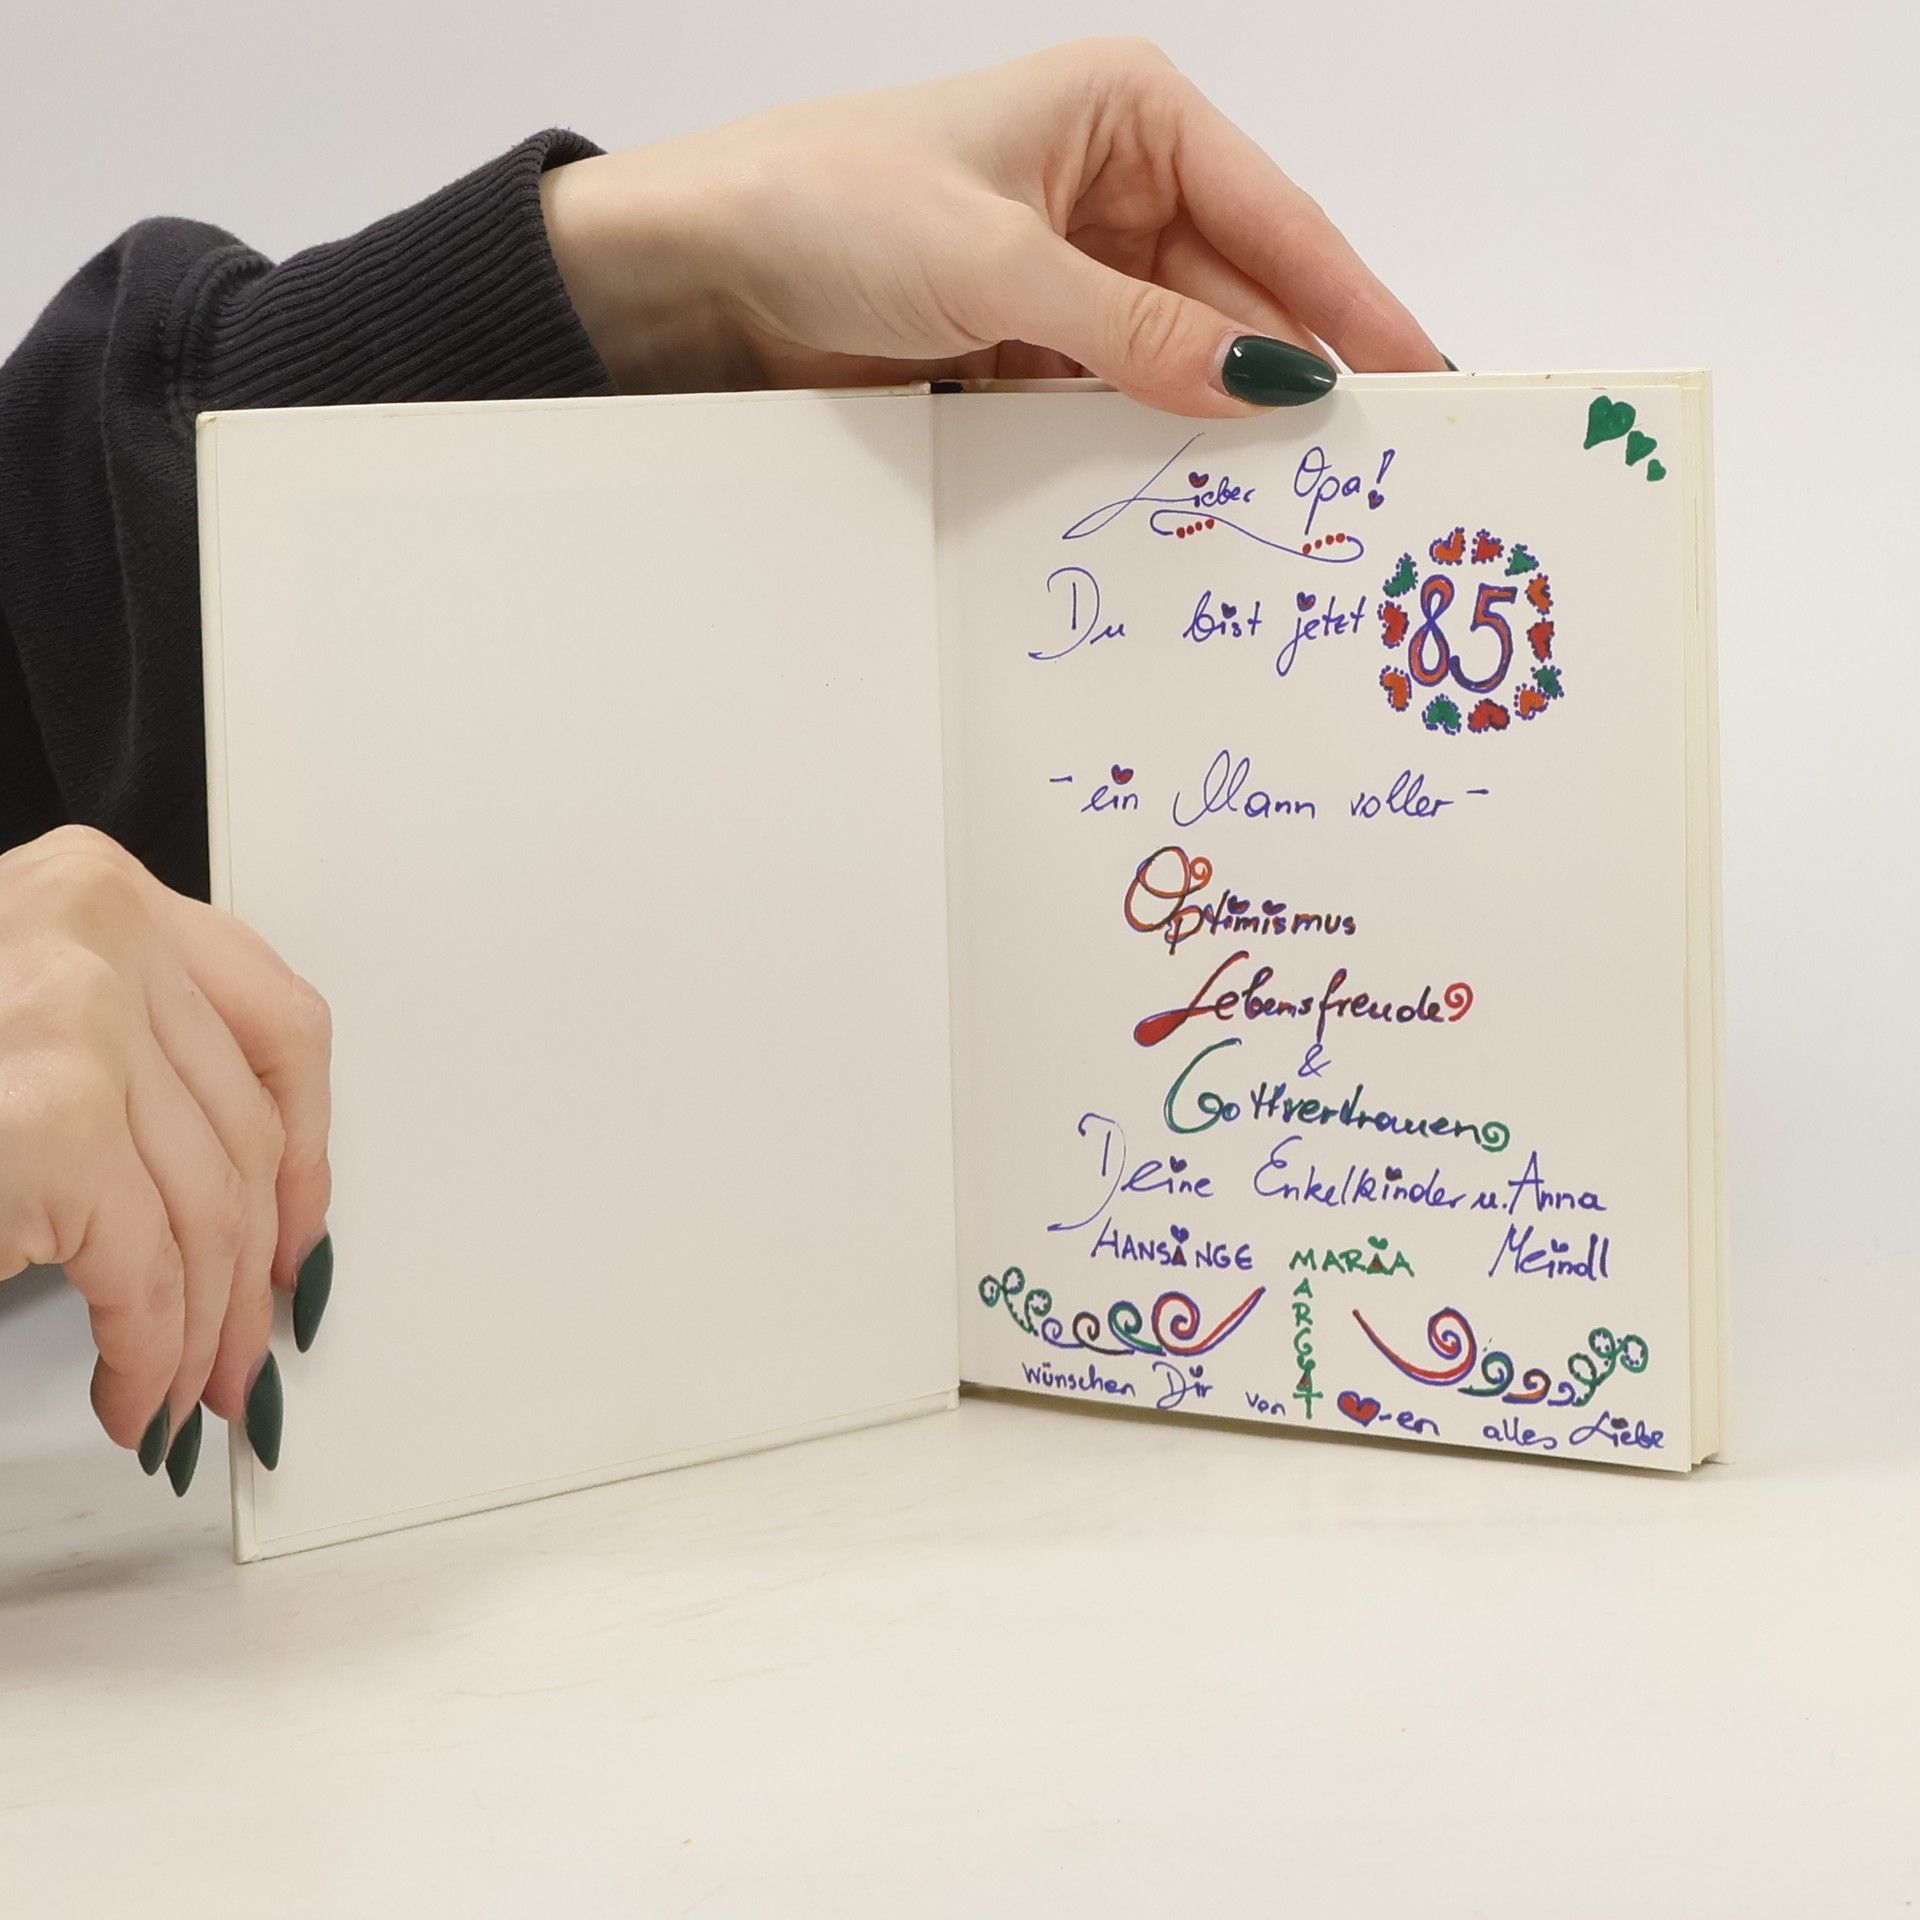 Lieber Opa!
Du bist jetzt 85
- ein Mann voller -
Optimismus
Lebensfreude
&
Gottvertrauen
Deine Enkelkinder u. Anna
HANSINGE MARIA Meindl
MARGIT
wünschen Dir von ♥-en alles Liebe